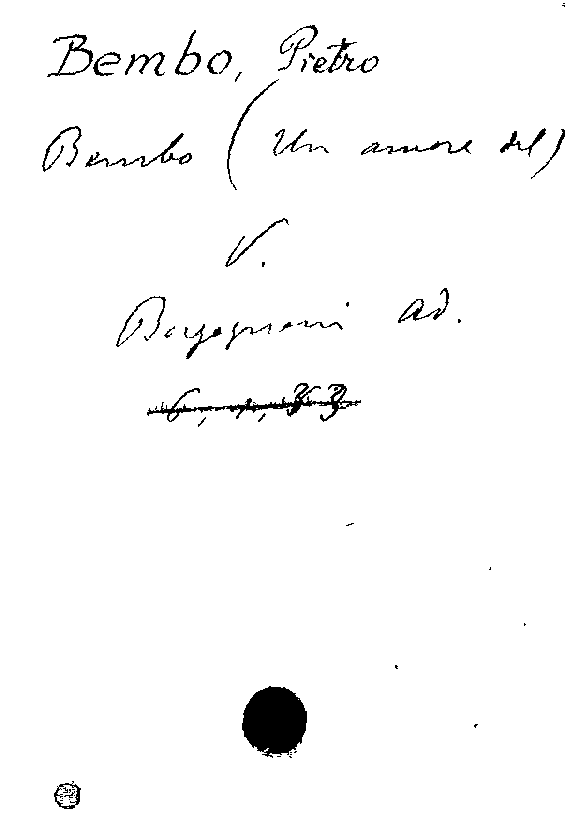 Bembo, Pietro
Bembo (Un amore del)
V.
Borgognoni Ad.
6, 1, 33